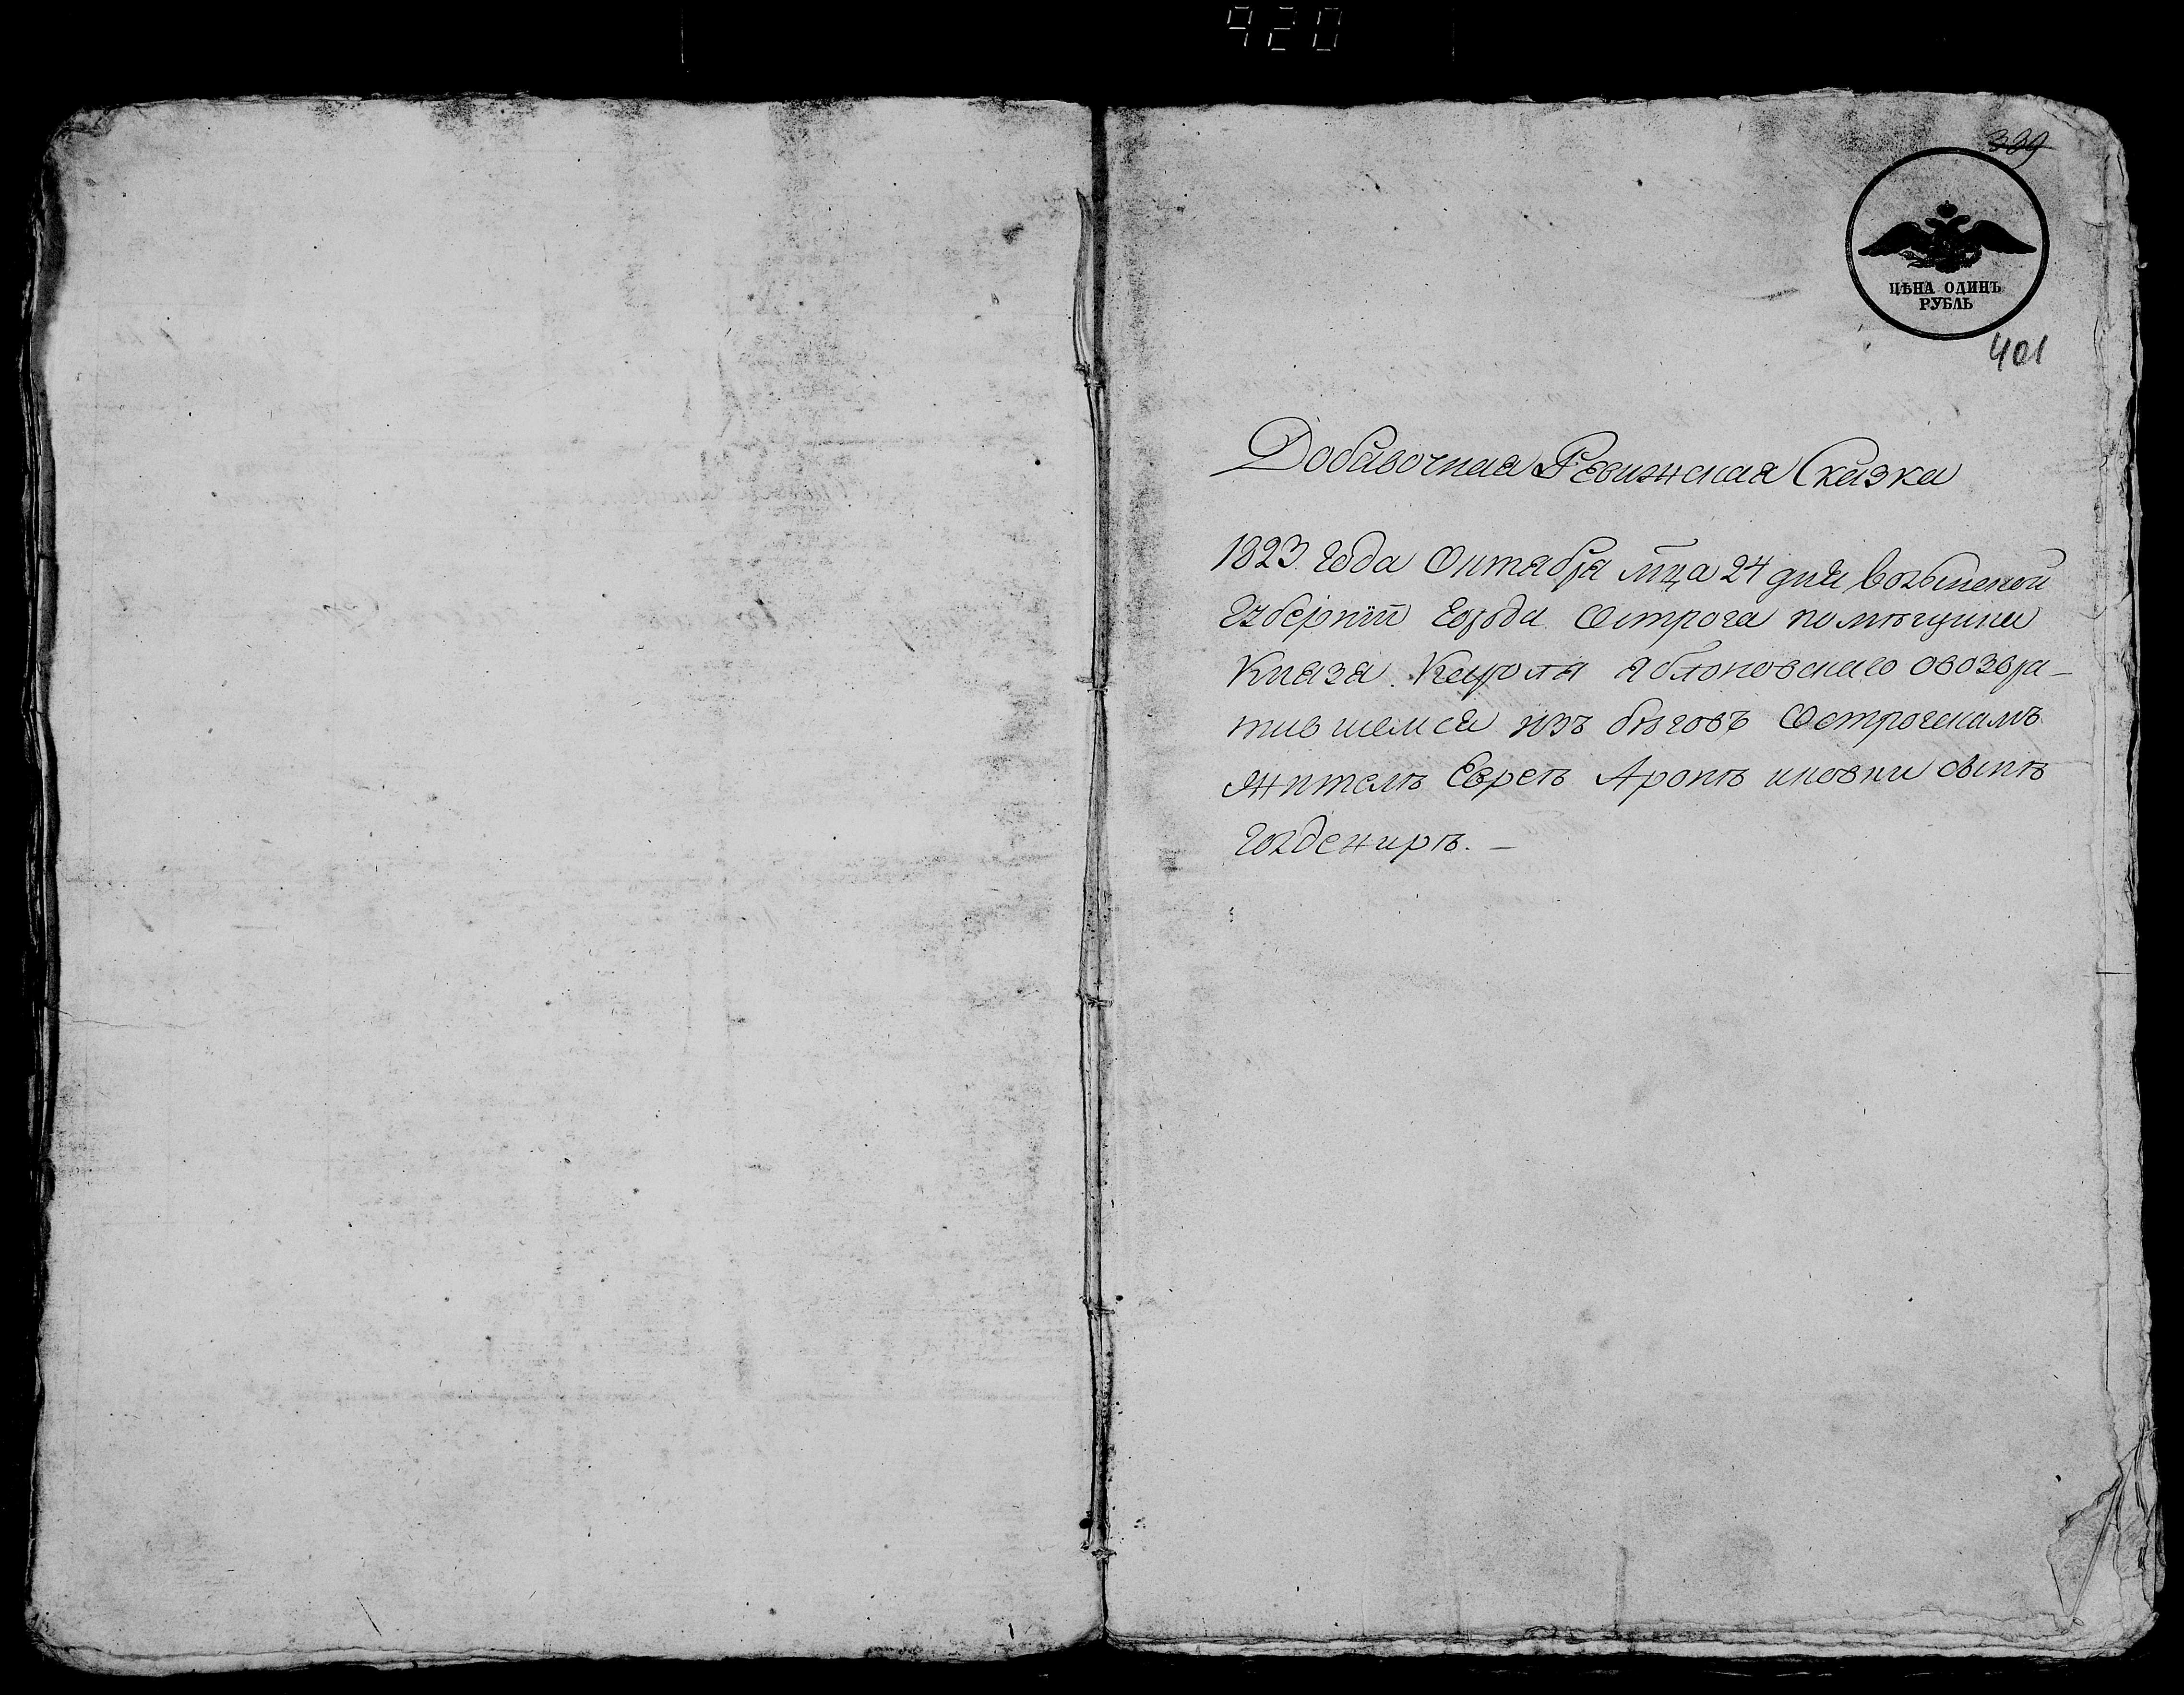 420
339
ЦѢНА ОДИНЪ
РУБЛЬ
401
Добавочная Ревижская Сказка
1823. года Октября мца 24 дня волынской
Губерніи города Острога помѣщика
Князя Кароля Яблоновскаго овозвра-
тившемся изъ бѣговъ Острогскомъ
жителѣ Евреѣ Аронѣ иковки сынѣ